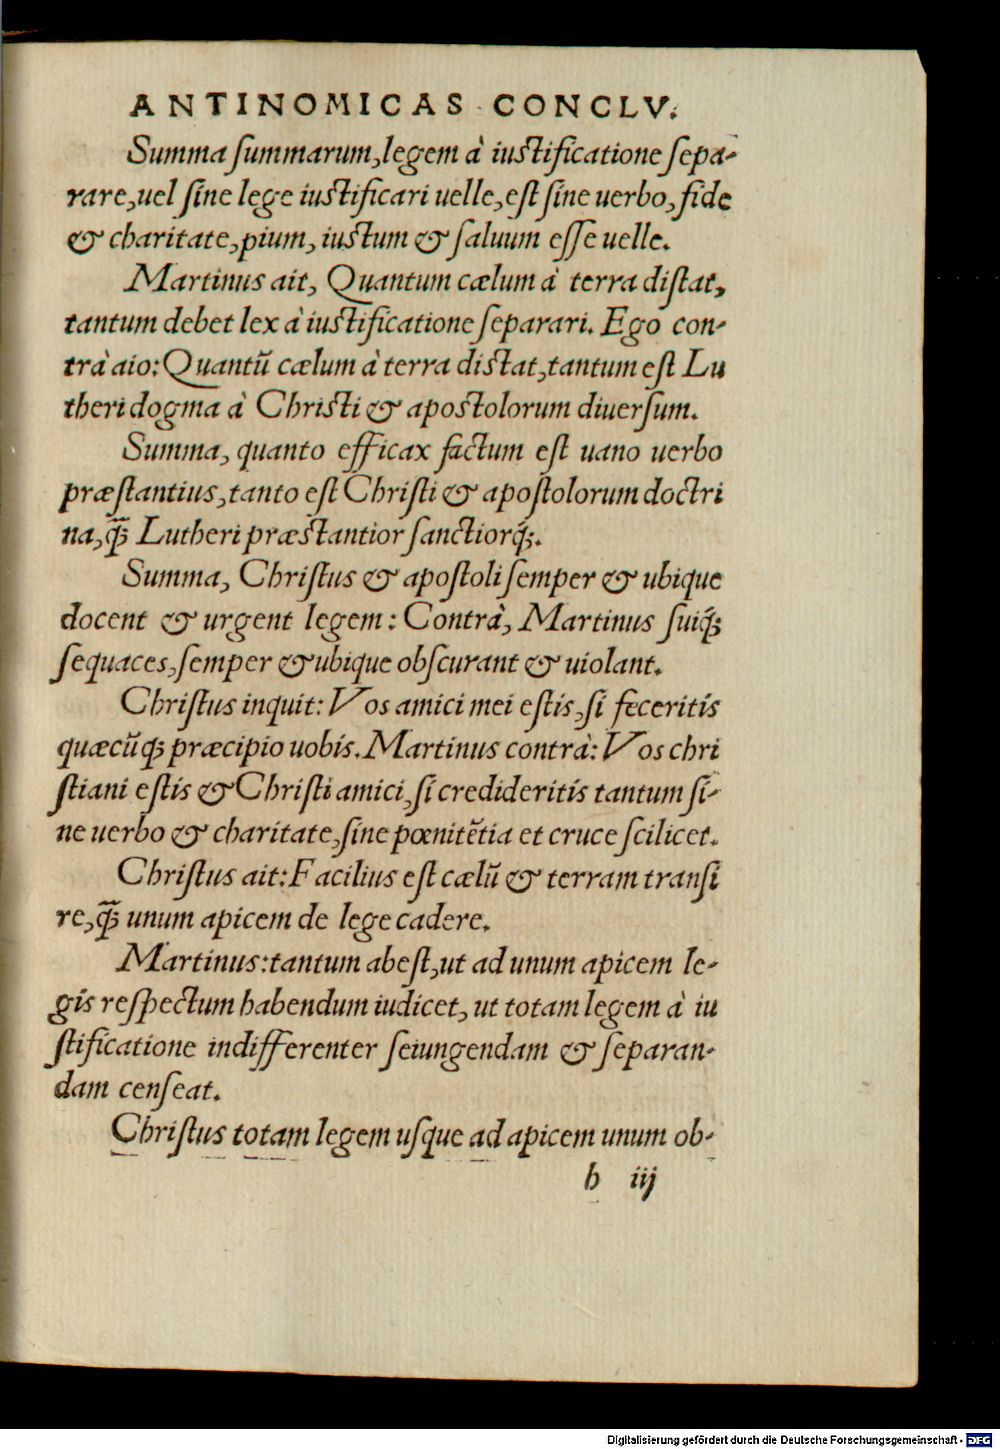 ANTINOMICAS CONCLV.
Summa ſummarum, legem à iuſtificatione ſepa-
rare, uel ſine lege iuſtificari uelle, eſt ſine uerbo, fide
& charitate, pium, iuſtum & ſaluum eſſe uelle.
Martinus ait, Quantum cælum à terra diſtat,
tantum debet lex à iuſtificatione ſeparari. Ego con-
trà aio: Quantũ cælum à terra diſtat, tantum eſt Lu
theri dogma à Chriſti & apoſtolorum diuerſum.
Summa, quanto efficax factum eſt uano uerbo
præſtantius, tanto eſt Chriſti & apoſtolorum doctri
na, ꝗ̃ Lutheri præſtantior ſanctiorq́;.
Summa, Chriſtus & apoſtoli ſemper & ubique
docent & urgent legem: Contrà, Martinus ſuiq́;
ſequaces, ſemper & ubique obſcurant & uiolant.
Chriſtus inquit: Vos amici mei eſtis, ſi feceritis
quæcũq; præcipio uobis. Martinus contrà: Vos chri
ſtiani eſtis & Chriſti amici, ſi credideritis tantum ſi-
ne uerbo & charitate, ſine pœnitẽtia et cruce ſcilicet.
Chriſtus ait: Facilius eſt cælũ & terram tranſi
re, ꝗ̃ unum apicem de lege cadere.
Martinus: tantum abeſt, ut ad unum apicem le-
gis reſpectum habendum iudicet, ut totam legem à iu
ſtificatione indifferenter ſeiungendam & ſeparan-
dam cenſeat.
Chriſtus totam legem uſque ad apicem unum ob-
b iij
Digitalisierung gefördert durch die Deutsche Forschungsgemeinschaft - DFG